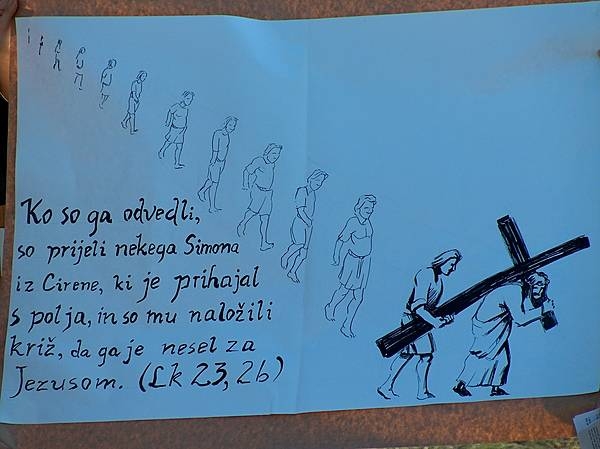 Ko so ga odvedli,
so prijeli nekega Simona
iz Cirene, ki je prihajal
s polja, in so mu naložili
križ, da ga je nesel za
Jezusom. (Lk 23, 26)